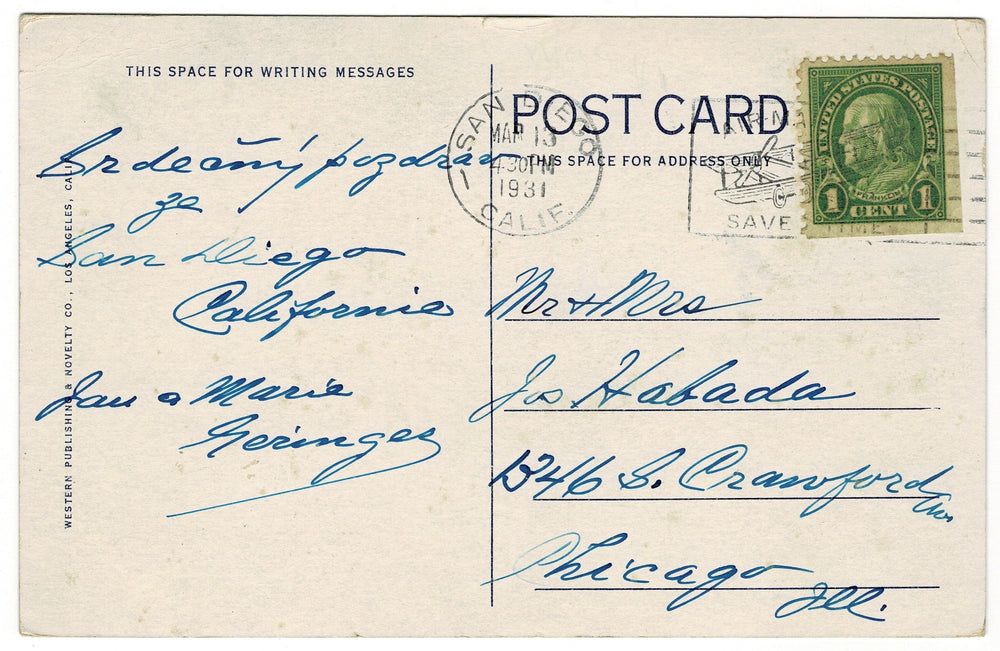 THIS SPACE FOR WRITING MESSAGES
Srdečný pozdrav
ze
San Diego
California
Jan a Marie
Geringer
WESTERN PUBLISHING & NOVELTY CO., LOS ANGELES, CALIF.
POST CARD
THIS SPACE FOR ADDRESS ONLY
SAN DIEGO
MAR 13
4:30 PM
1931
CALIF.
AIR MAIL
SAVE TIME
UNITED STATES POSTAGE
FRANKLIN
1 CENT 1
Mr & Mrs
Jos Habada
1346 S. Crawford
Ave
Chicago
Ill.